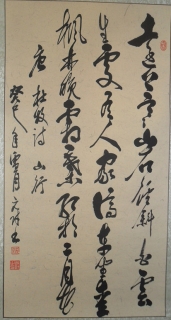 遠上寒山石徑斜白雲
生處有人家停車坐愛
楓林晚霜葉紅於二月花
唐杜牧詩山行
癸巳年雪月書